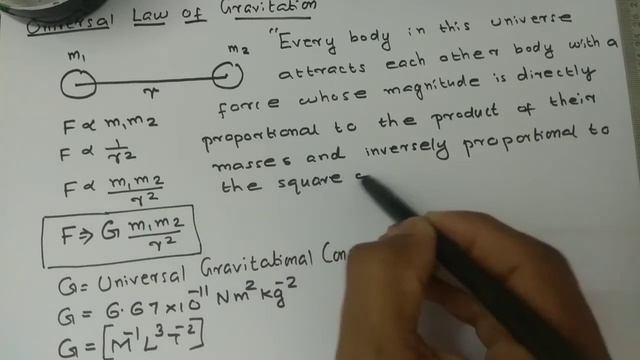 Universal Law of Gravitation
m1
m2
r
"Every body in this universe
attracts each other body with a
force whose magnitude is directly
proportional to the product of their
masses and inversely proportional to
the square
F ∝ m1 m2
F ∝ 1/r2
F ∝ m1 m2/r2
F ⇒ G m1 m2/r2
G = Universal Gravitational Con
G = 6.67×10^-11 Nm^2 kg^-2
G = [M^-1 L^3 T^-2]